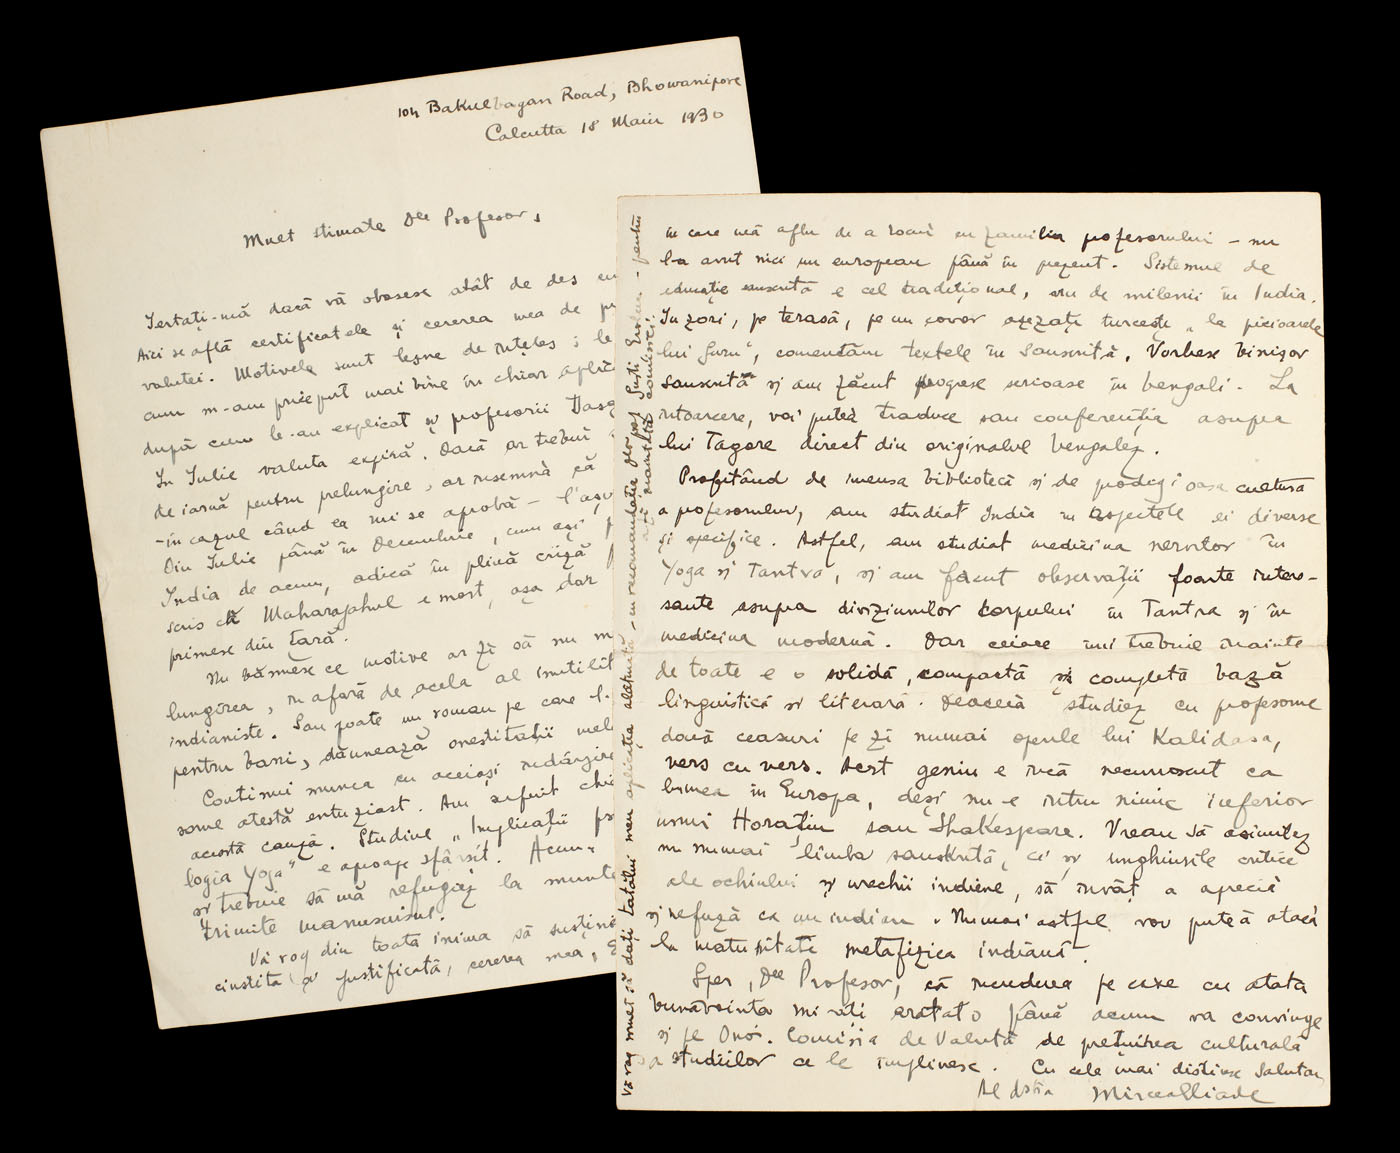 104 Bakulbagan Road, Bhowanipore
Calcutta 18 Maiu 1930
Mult stimate Dle Profesor,
Iertați-mă dacă vă obosesc atât de des cu
Aici se află certificatele și cererea mea de
valutei. Motivele sunt lesne de înțeles; le
cum m-am priceput mai bine în chiar
după cum le-au explicat și profesorii
In Iulie valuta expiră. Dacă ar trebui
de iarnă pentru prelungire, ar însemnà că
- în cazul când ea mi se aprobă -
Din Iulie până în Decembrie, cum
India de acum, adică în plină criză
scris că Maharajahul e mort, așa dar
primesc din țară.
Nu bănuesc ce motive ar fi să nu
lungirea, în afară de acela al
indianiste. Sau poate un roman pe care l-
pentru bani, dăunează onestității
Continui munca cu aceiași
atestă entuziast. Am suferit
această cauză. Studiul „Implicații
logia Yoga" e aproape sfârșit. Acum
și trebuie să mă refugiez la munte
trimite manuscrisul.
Vă rog din toată inima să
cinstită și justificată, cererea mea,
în care mă aflu de a locui în familia profesorului - nu
l-a avut nici un european până în prezent. Sistemul de
educație sanscrită e cel tradițional, de milenii în India.
In zori, pe terasă, pe un covor așezați turcește „la picioarele
lui Guru", comentăm textele în sanscrită. Vorbesc binișor
sanscrita și am făcut progrese serioase în bengali. La
intoarcere, voi puteà traduce sau conferenția asupra
lui Tagore direct din originalul bengalez.
Profitând de imensa bibliotecă și de prodigioasa cultura
a profesorului, am studiat India în aspectele ei diverse
și specifice. Astfel, am studiat medicina nervilor în
Yoga și Tantra, și am făcut observații foarte intere-
sante asupra diviziunilor corpului în Tantra și în
medicina modernă. Dar ceiace îmi trebuie înainte
de toate e o solidă, compactă și completă bază
linguistică și literară. Deaceia studiez cu profesorul
două ceasuri pe zi numai operele lui Kalidasa,
vers cu vers. Acest geniu e încă necunoscut ca
lumea în Europa, deși nu-e întru nimic inferior
unui Horațiu sau Shakespeare. Vreau să asimilez
nu numai limba sanskrită, ci și unghiurile critice
ale ochiului și urechii indiene, să învăț a apreciă
și refuză ca un indian. Numai astfel voi puteà atacà
la maturitate metafizica indiană.
Sper, Dle Profesor, că încrederea pe care cu atata
bunăvoință mi-ați arătat-o până acum va convinge
și pe Onor. Comisia de Valută de prețuirea culturală
a studiilor ce le împlinesc. Cu cele mai distinse salutări
Al dstră Mircea Eliade
Vă rog mult să dați tatălui meu aplicația alăturată - cu recomandația - pentru
a fi înaintată comisiei.